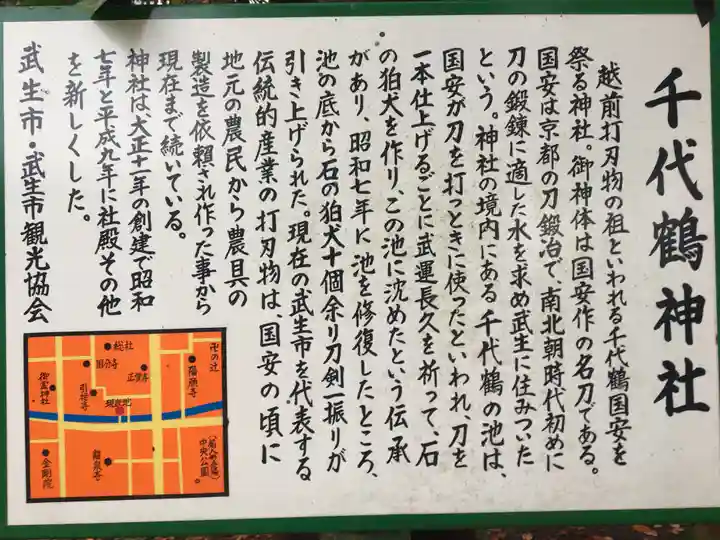 千代鶴神社
越前打刃物の祖といわれる千代鶴国安を
祭る神社。御神体は国安作の名刀である。
国安は京都の刀鍛冶で、南北朝時代初めに
刀の鍛錬に適した水を求め武生に住みついた
という。神社の境内にある千代鶴の池は、
国安が刀を打っときに使ったといわれ、刀を
一本仕上げるごとに武運長久を祈って、石
の狛犬を作り、この池に沈めたという伝承
があり、昭和七年に池を修復したところ、
池の底から石の狛犬十個余り刀剣一振りが
引き上げられた。現在の武生市を代表する
伝統的産業の打刃物は、国安の頃に
地元の農民から農具の
製造を依頼され作った事から
現在まで続いている。
神社は、大正十一年の創建で昭和
七年と平成九年に社殿その他
を新しくした。
武生市・武生市観光協会
卍の辻
総社
国分寺
正覚寺
陽願寺
御霊神社
引接寺
現在地
龍泉寺
金剛院
(菊人形会場)
中央公園